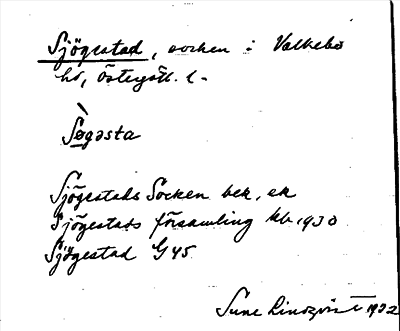 Sjögestad, socken i Valkebo
hd, Östergötl. l.
Søgəsta
Sjögestads Socken bek. ek
Sjögestads församling kb 1930
Sjögestad G 45
Sune Lindqvist 1932